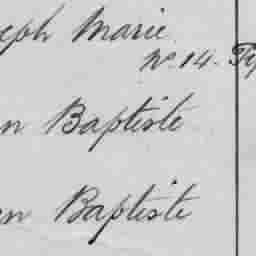 eph Marie
No. 14.
n Baptiste
n Baptiste